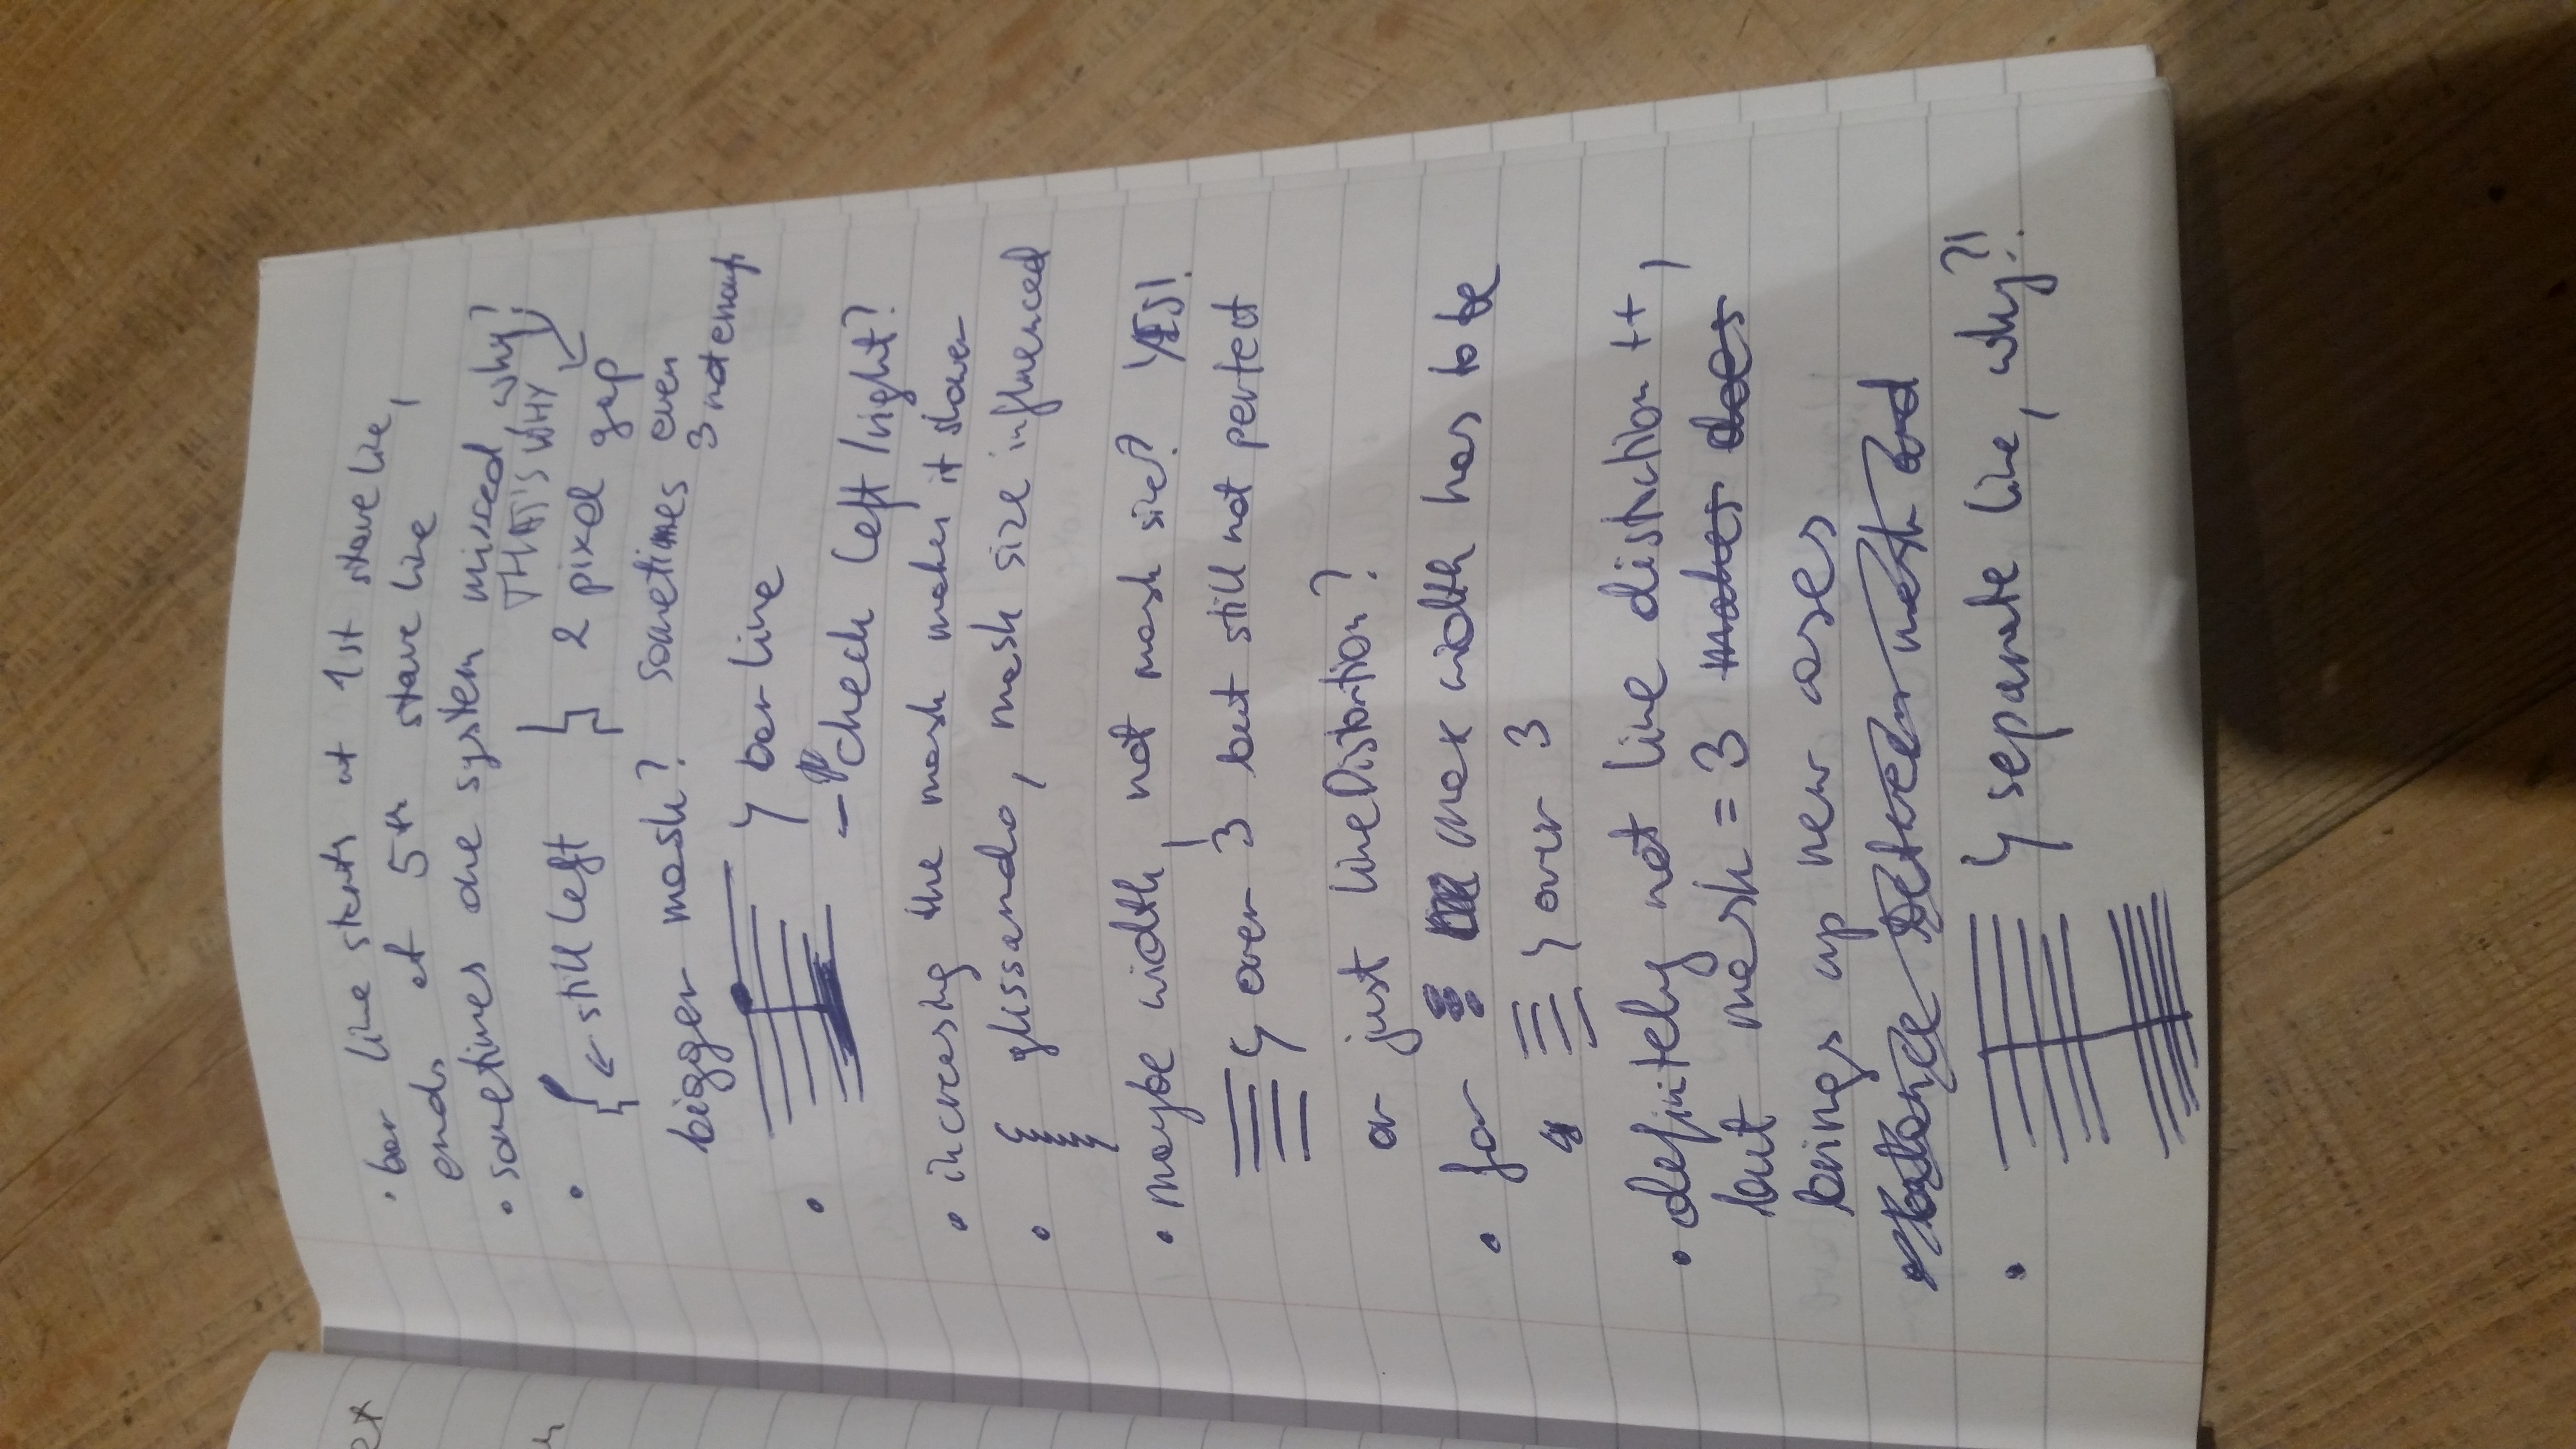 et
• bar line starts at 1st stave line,
ends at 5th stave line
• sometimes one system missed, why?
THAT'S WHY
• ← still left 2 pixel gap
bigger mask? sometimes even
3 not enough
• ↳ bar line
- check left/right?
• increasing the mask makes it slower
• glissando, mask size influenced
• maybe width, not mask size? YES!
↳ over 3 but still not perfect
or just lineDistortion?
• for max width has to be
↳ over 3
• definitely not line distortion ++,
but mask = 3 makes does
brings up new cases
• balance between mask and
• ↳ separate line, why?!